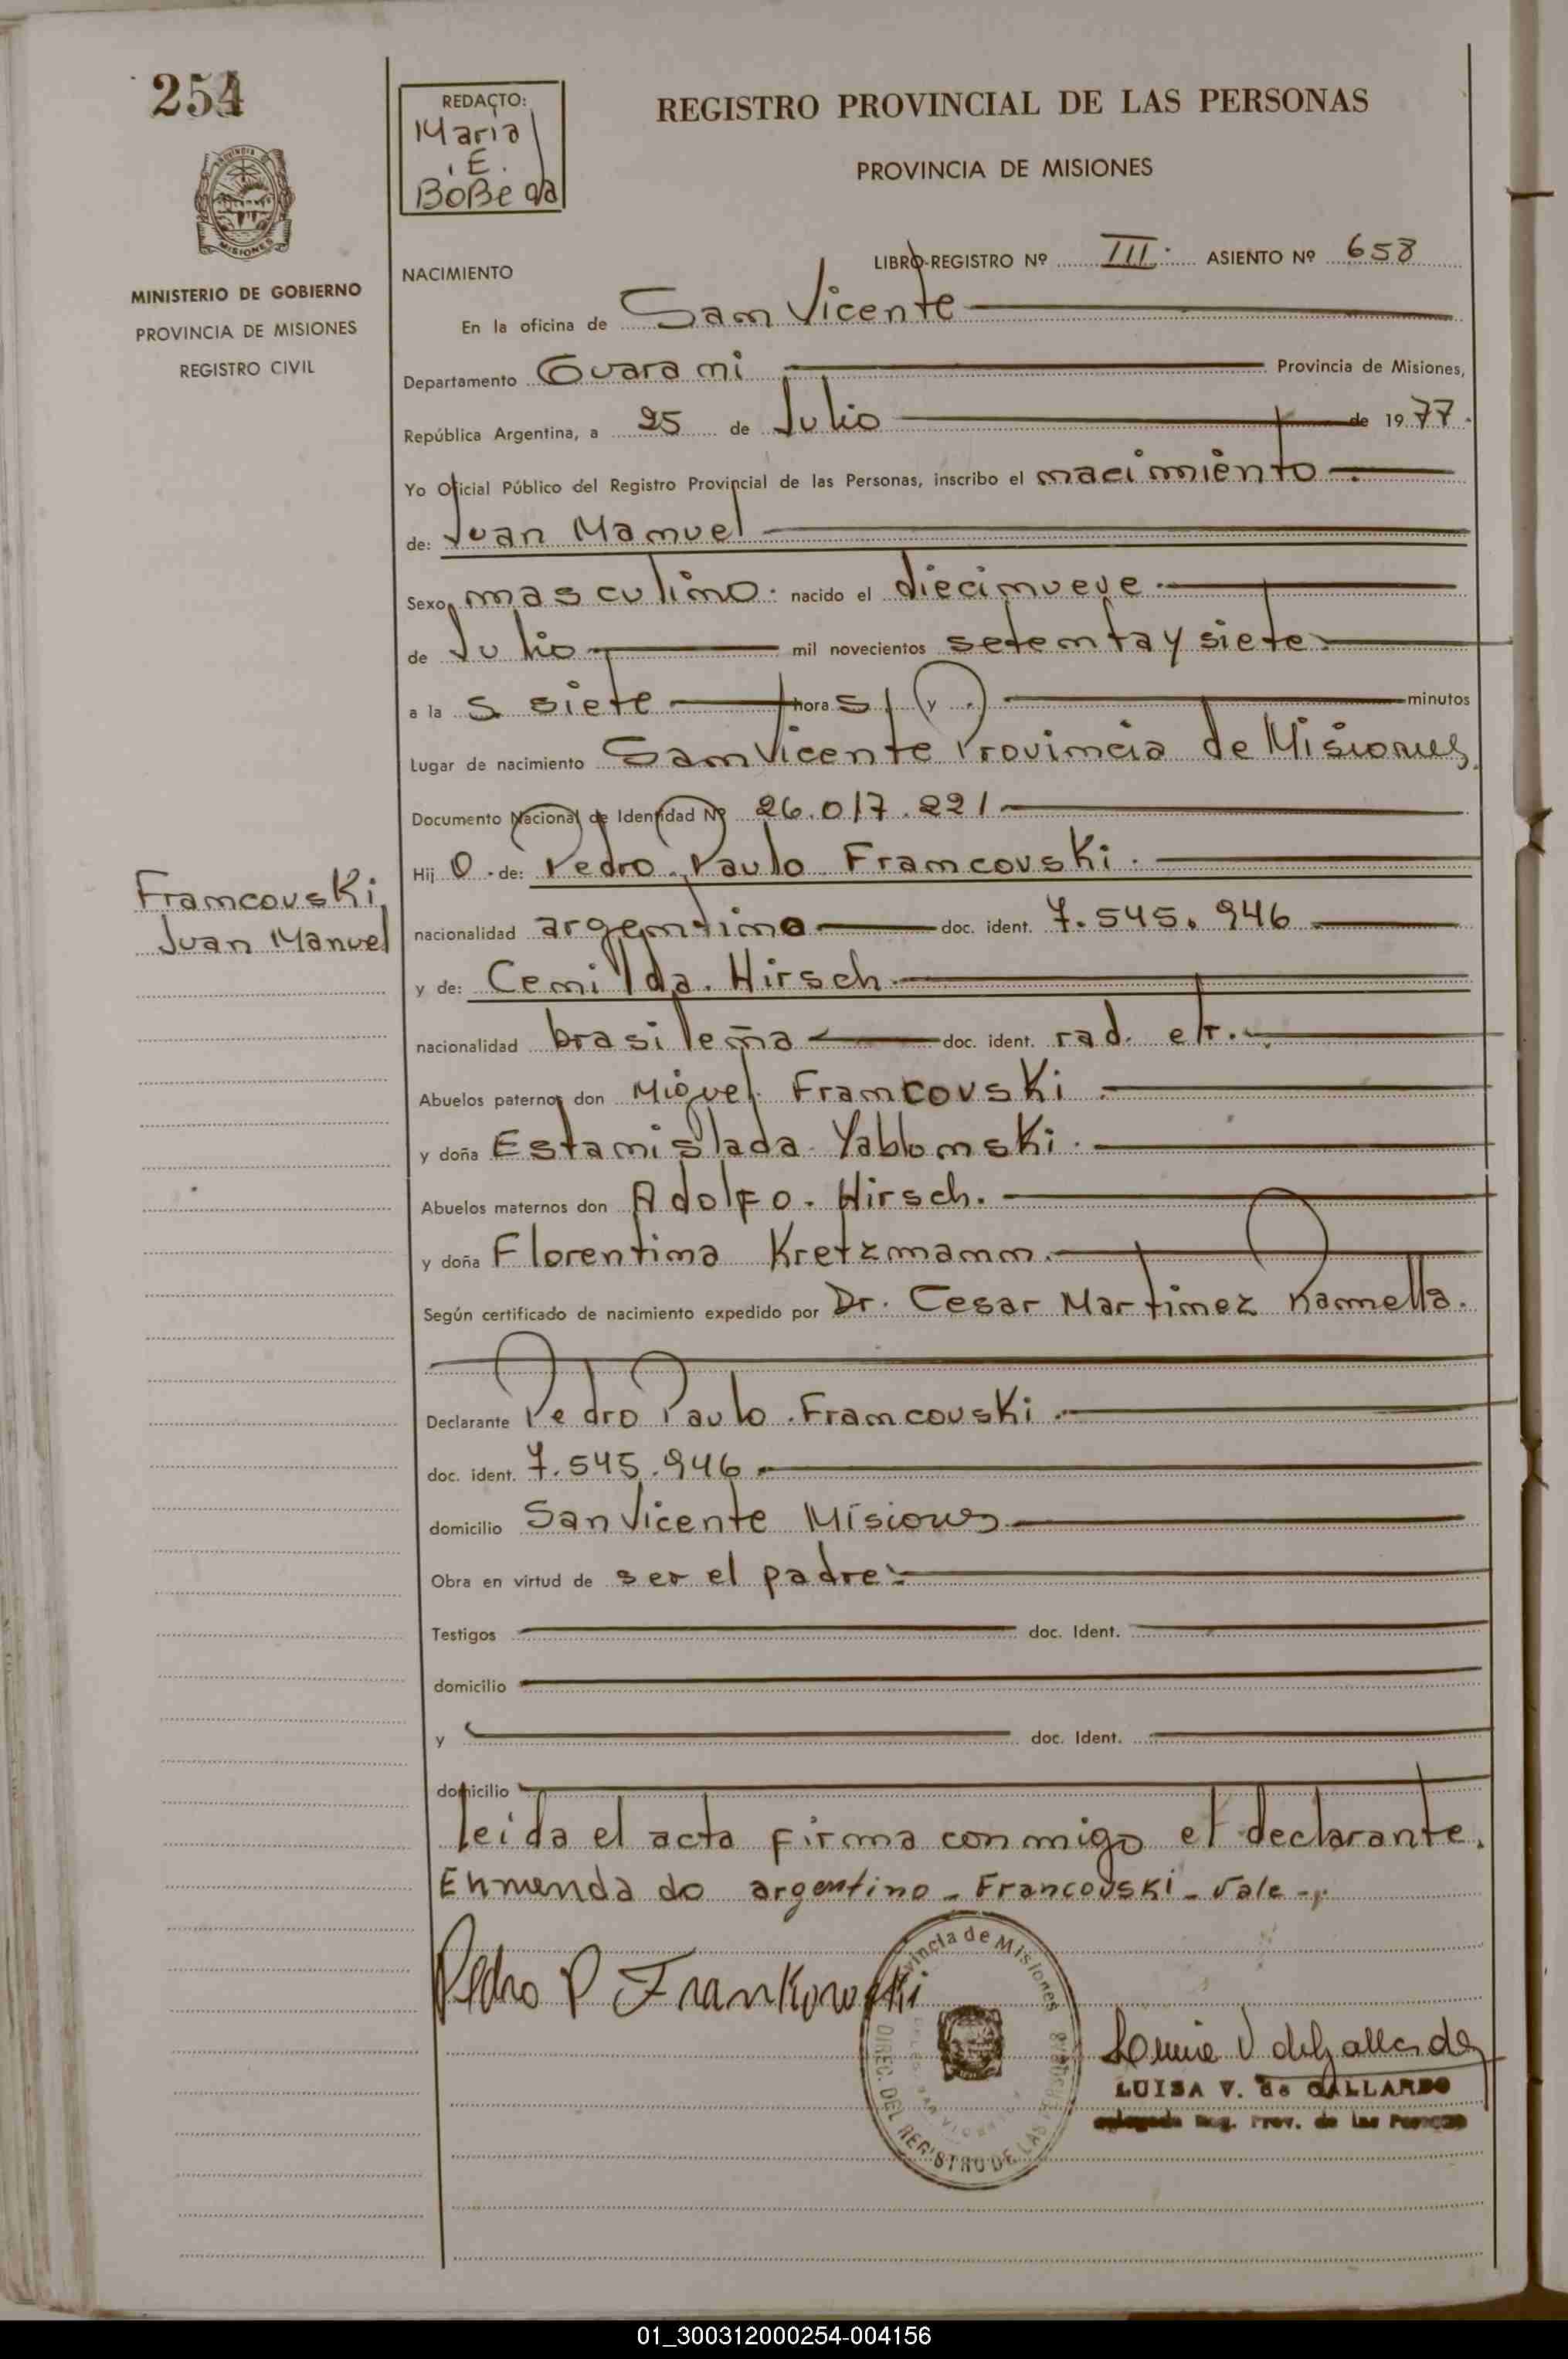 254
REDACTO:
Maria
E.
BoBeda
REGISTRO PROVINCIAL DE LAS PERSONAS
PROVINCIA DE MISIONES
MISIONES
MINISTERIO DE GOBIERNO
PROVINCIA DE MISIONES
REGISTRO CIVIL
NACIMIENTO
LIBRO-REGISTRO Nº III. ASIENTO Nº 658
En la oficina de San Vicente
Departamento Guarani Provincia de Misiones,
República Argentina, a 25 de Julio de 1977.
Yo Oficial Público del Registro Provincial de las Personas, inscribo el nacimiento
de: Juan Manuel
Sexo masculino. nacido el diecinueve
de Julio mil novecientos setenta y siete
a la s siete hora s y minutos
Lugar de nacimiento San Vicente Provincia de Misiones
Documento Nacional de Identidad Nº 26.017.221
Hij o. de: Pedro Paulo Francovski.
Francovski
Juan Manuel
nacionalidad argentino doc. ident. 7.545.946
y de: Cemilda Hirsch
nacionalidad brasileña doc. ident. rad. etr.
Abuelos paternos don Miguel Francovski
y doña Estanislada Yablonski
Abuelos maternos don Adolfo Hirsch.
y doña Florentina Kretzmann.
Según certificado de nacimiento expedido por Dr. Cesar Martinez Ramella.
Declarante Pedro Paulo Francovski
doc. ident. 7.545.946
domicilio San Vicente Misiones
Obra en virtud de ser el padre
Testigos doc. Ident.
domicilio
y doc. Ident.
domicilio
leida el acta firma conmigo el declarante.
Enmenda do argentino - Francovski - Vale -
Pedro P Frankowski
Provincia de Misiones
DIREC. DEL REGISTRO DE LAS PERSONAS
LUISA V. de GALLARDO
Delegada Reg. Prov. de las Personas
01_300312000254-004156